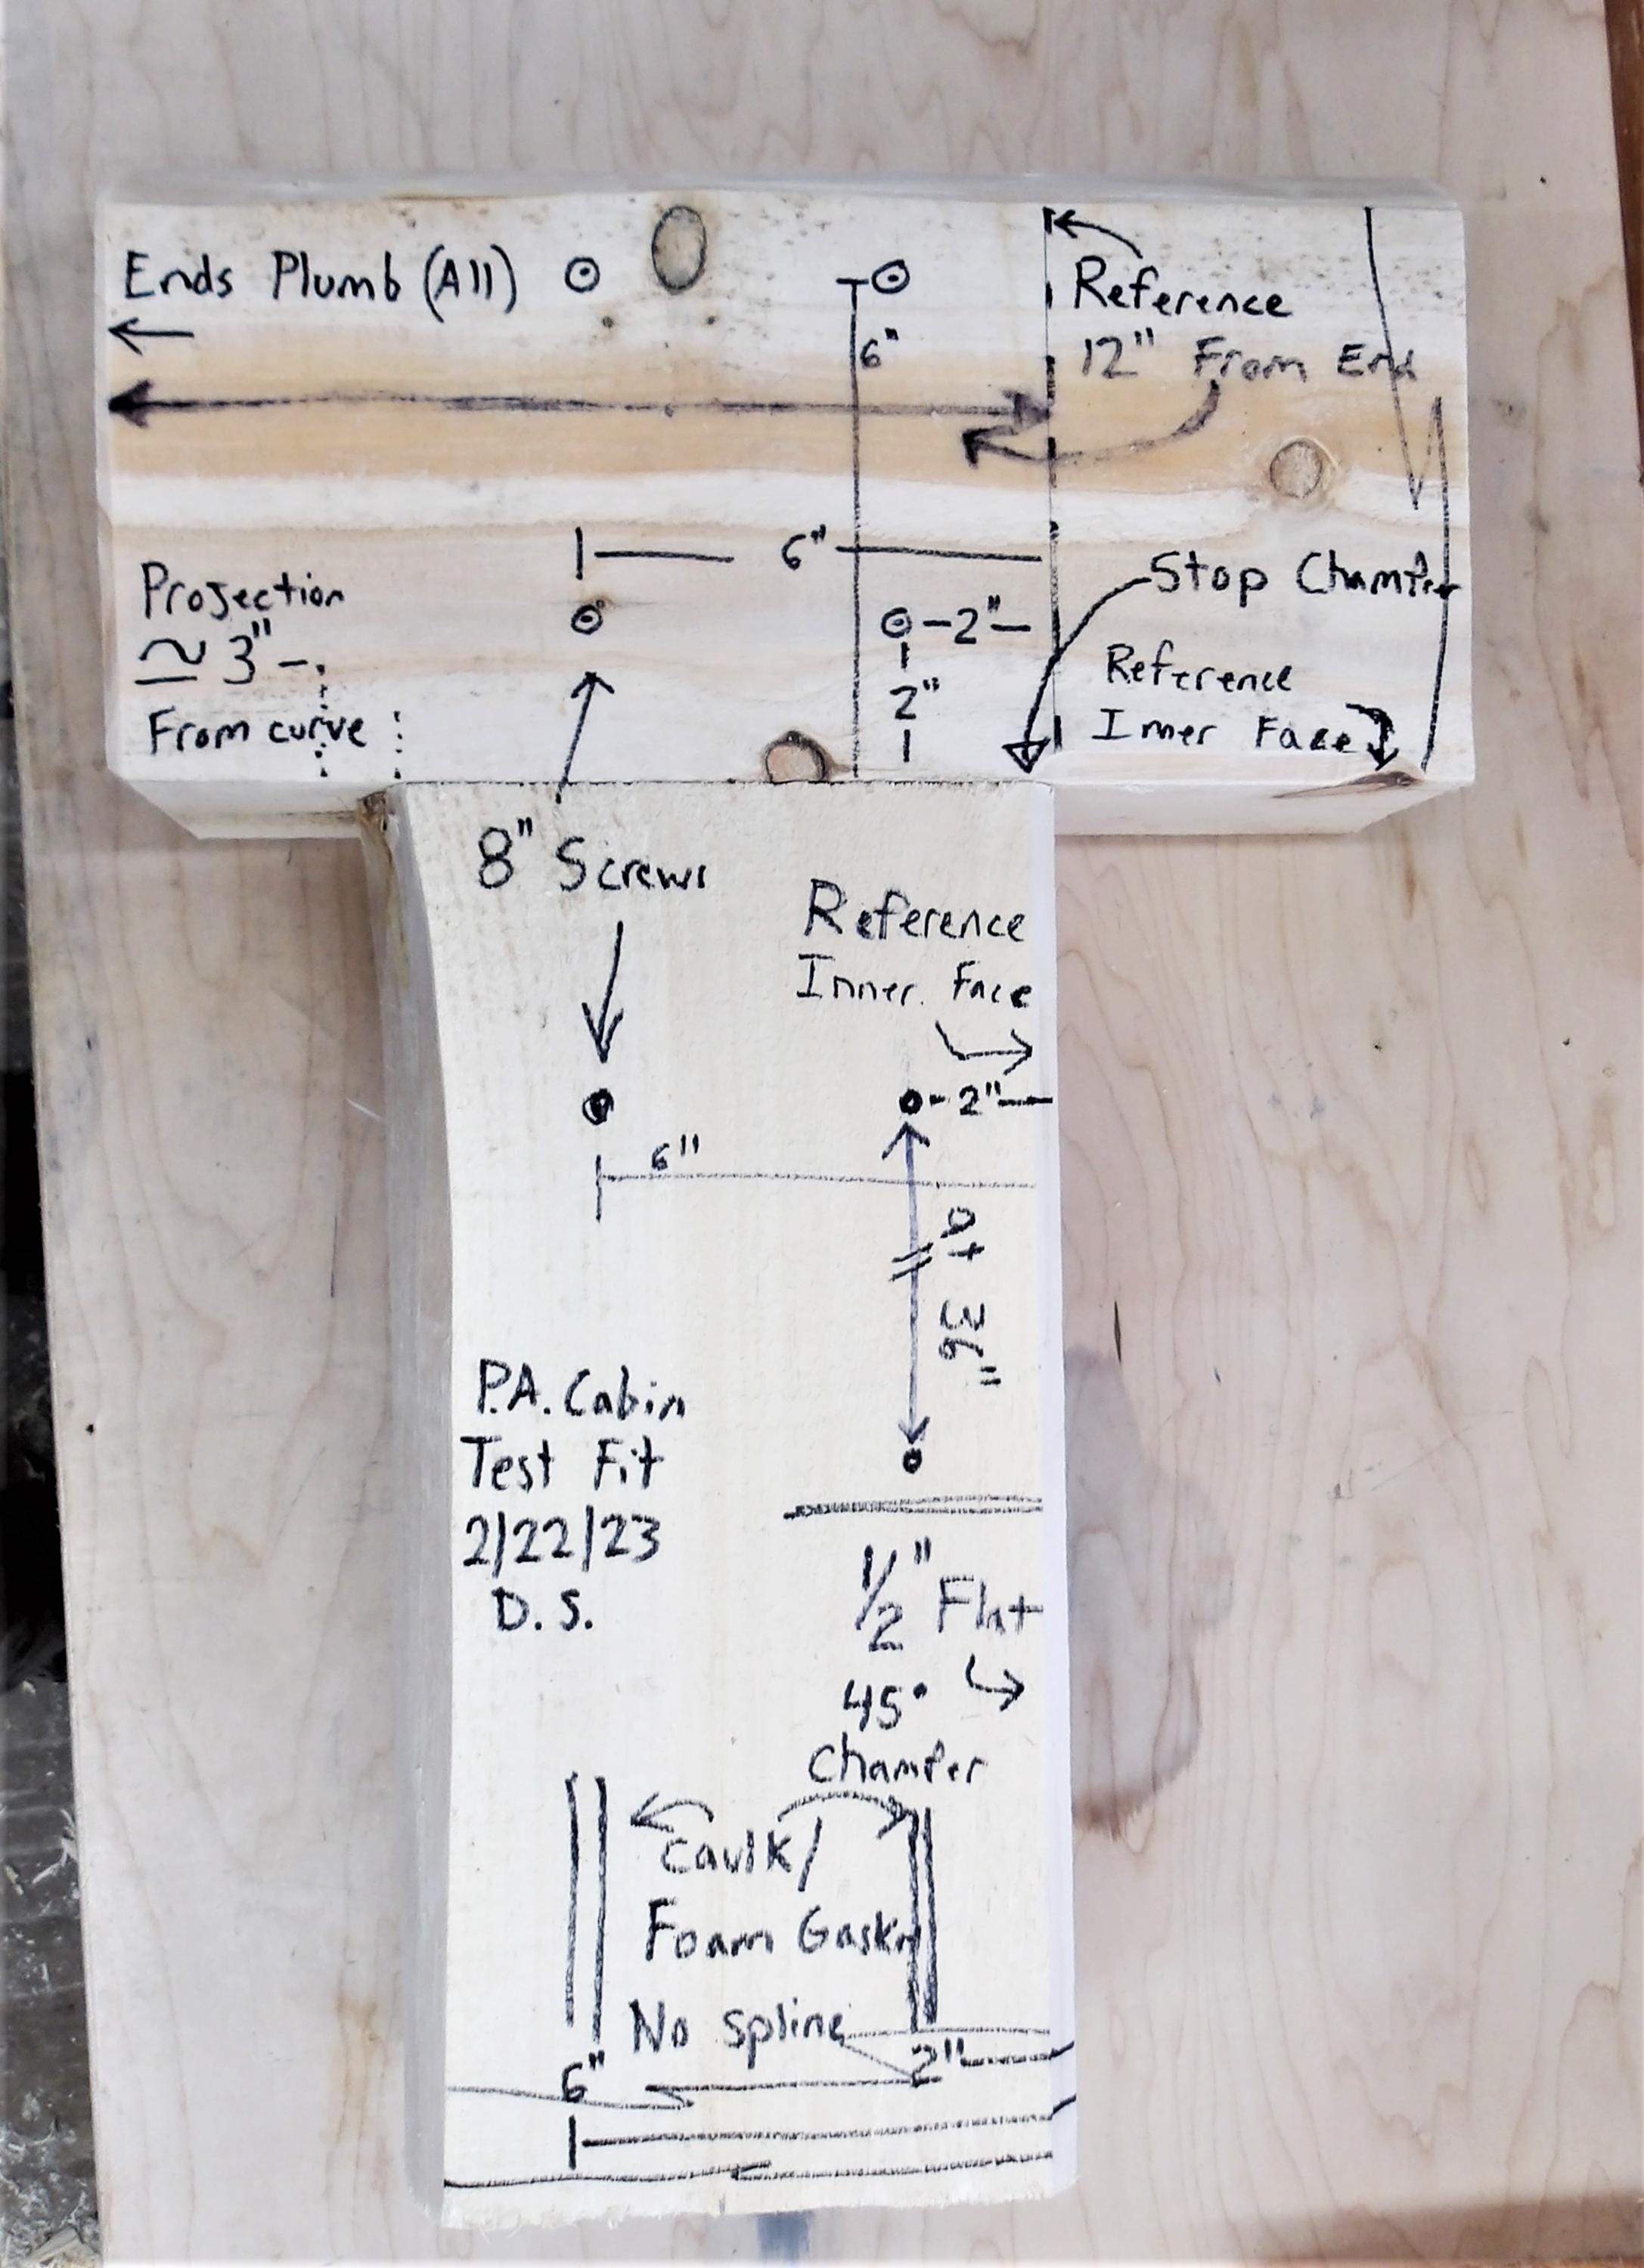 Ends Plumb (All)
6"
Reference
12" From End
6"
Stop Chamfer
Projection
≅ 3"
From curve
2"
2"
Reference
Inner Face
8" Screws
Reference
Inner Face
2"
6"
± 36"
P.A. Cabin
Test Fit
2/22/23
D.S.
1/2" Flat
45°
Chamfer
Caulk/
Foam Gasket
No Spline
6"
2"